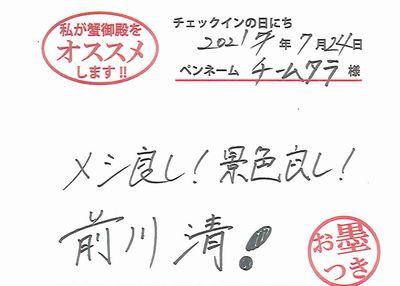 私が蟹御殿を
オススメ
します!!
チェックインの日にち
2021年 年 7月24日
ペンネーム チームタラ 様
メシ良し！景色良し！
前川 清!!
お墨
つき